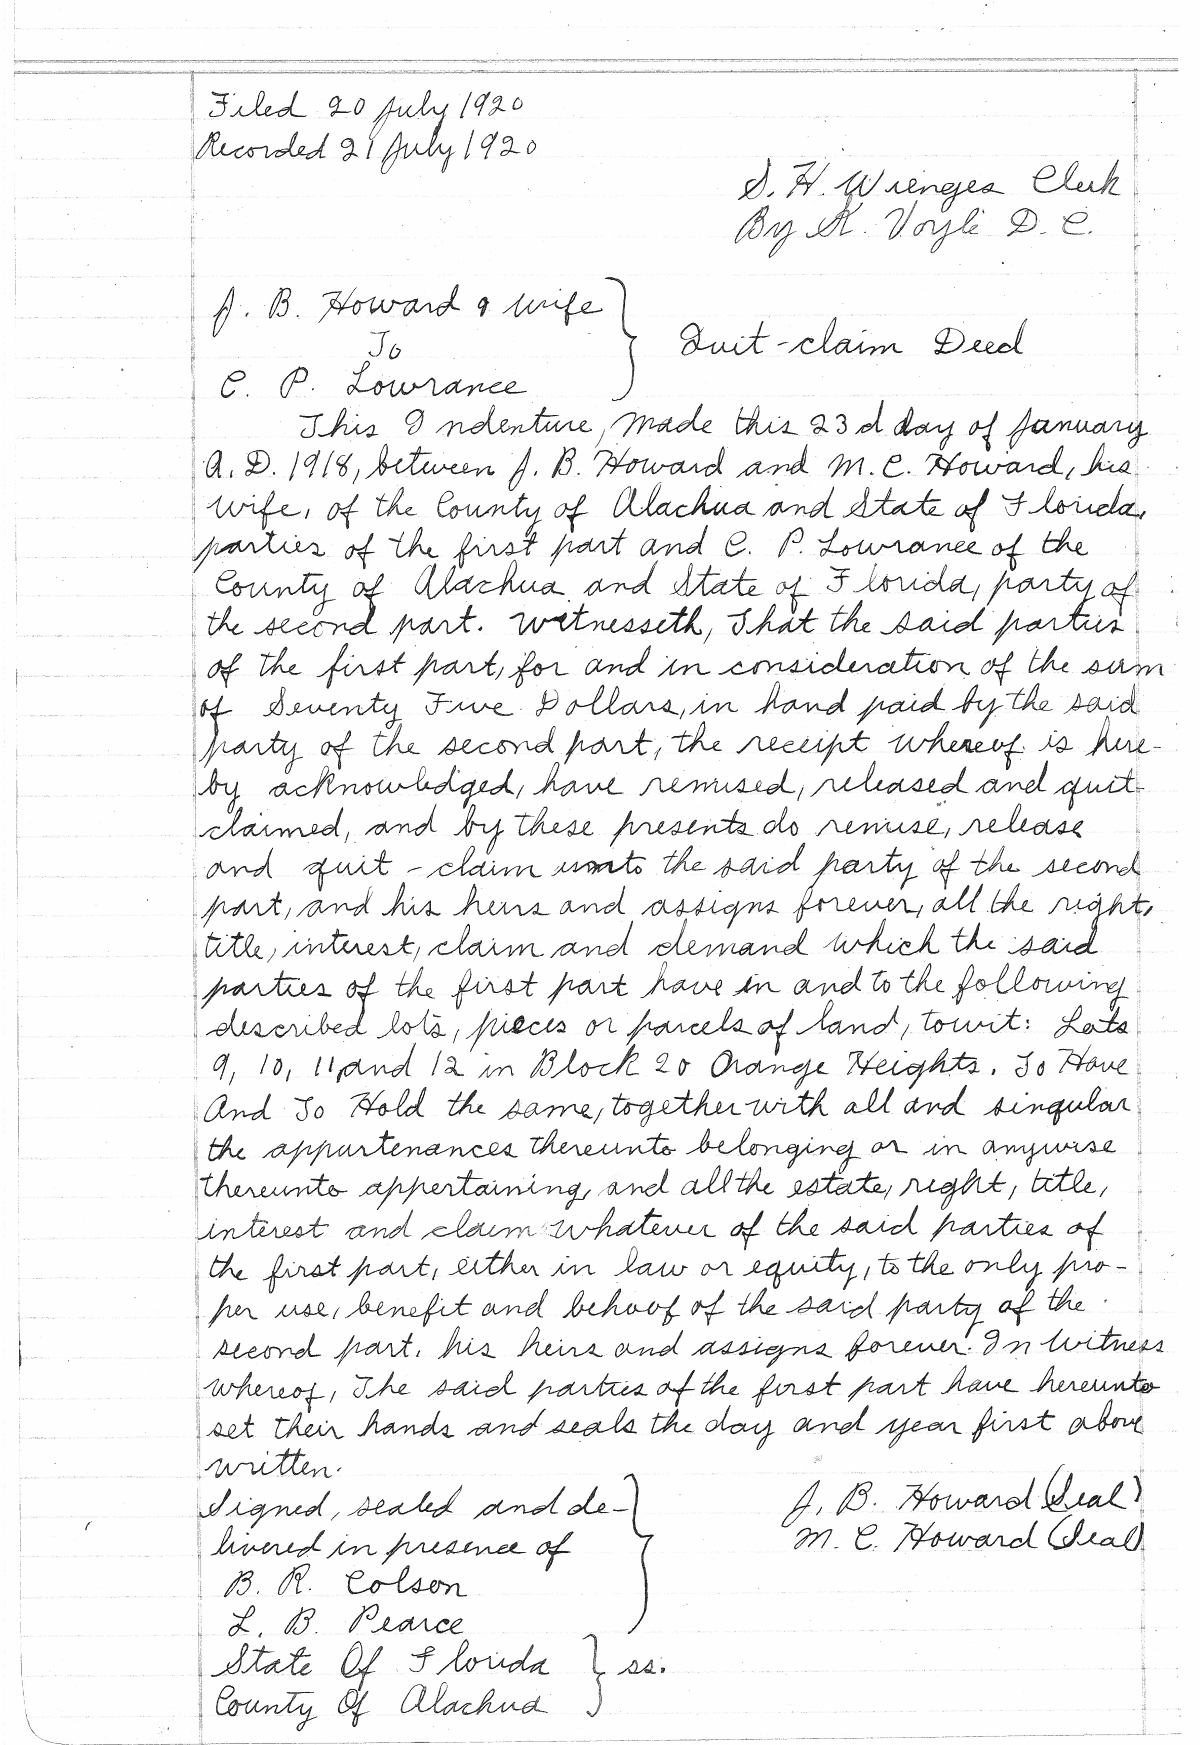 Filed 20 July 1920
Recorded 21 July 1920
S. H. Wienges Clerk
By K. Voyle D. C.
J. B. Howard & wife
To
C. P. Lowrance
Quit-claim Deed
This Indenture, made this 23d day of January
A. D. 1918, between J. B. Howard and M. C. Howard, his
wife, of the County of Alachua and State of Florida,
parties of the first part and C. P. Lowrance of the
County of Alachua and State of Florida, party of
the second part. Witnesseth, That the said parties
of the first part, for and in consideration of the sum
of Seventy Five Dollars, in hand paid by the said
party of the second part, the receipt whereof is here-
by acknowledged, have remised, released and quit-
claimed, and by these presents do remise, release
and quit-claim unto the said party of the second
part, and his heirs and assigns forever, all the right,
title, interest, claim and demand which the said
parties of the first part have in and to the following
described lots, pieces or parcels of land, towit: Lots
9, 10, 11, and 12 in Block 20 Orange Heights. To Have
And To Hold the same, together with all and singular
the appurtenances thereunto belonging or in anywise
thereunto appertaining, and all the estate, right, title,
interest and claim whatever of the said parties of
the first part, either in law or equity, to the only pro-
per use, benefit and behoof of the said party of the
second part, his heirs and assigns forever. In Witness
whereof, The said parties of the first part have hereunto
set their hands and seals the day and year first above
written.
Signed, sealed and de-
livered in presence of
B. R. Colson
L. B. Pearce
J. B. Howard (Seal)
M. C. Howard (Seal)
State Of Florida
County Of Alachua
ss.